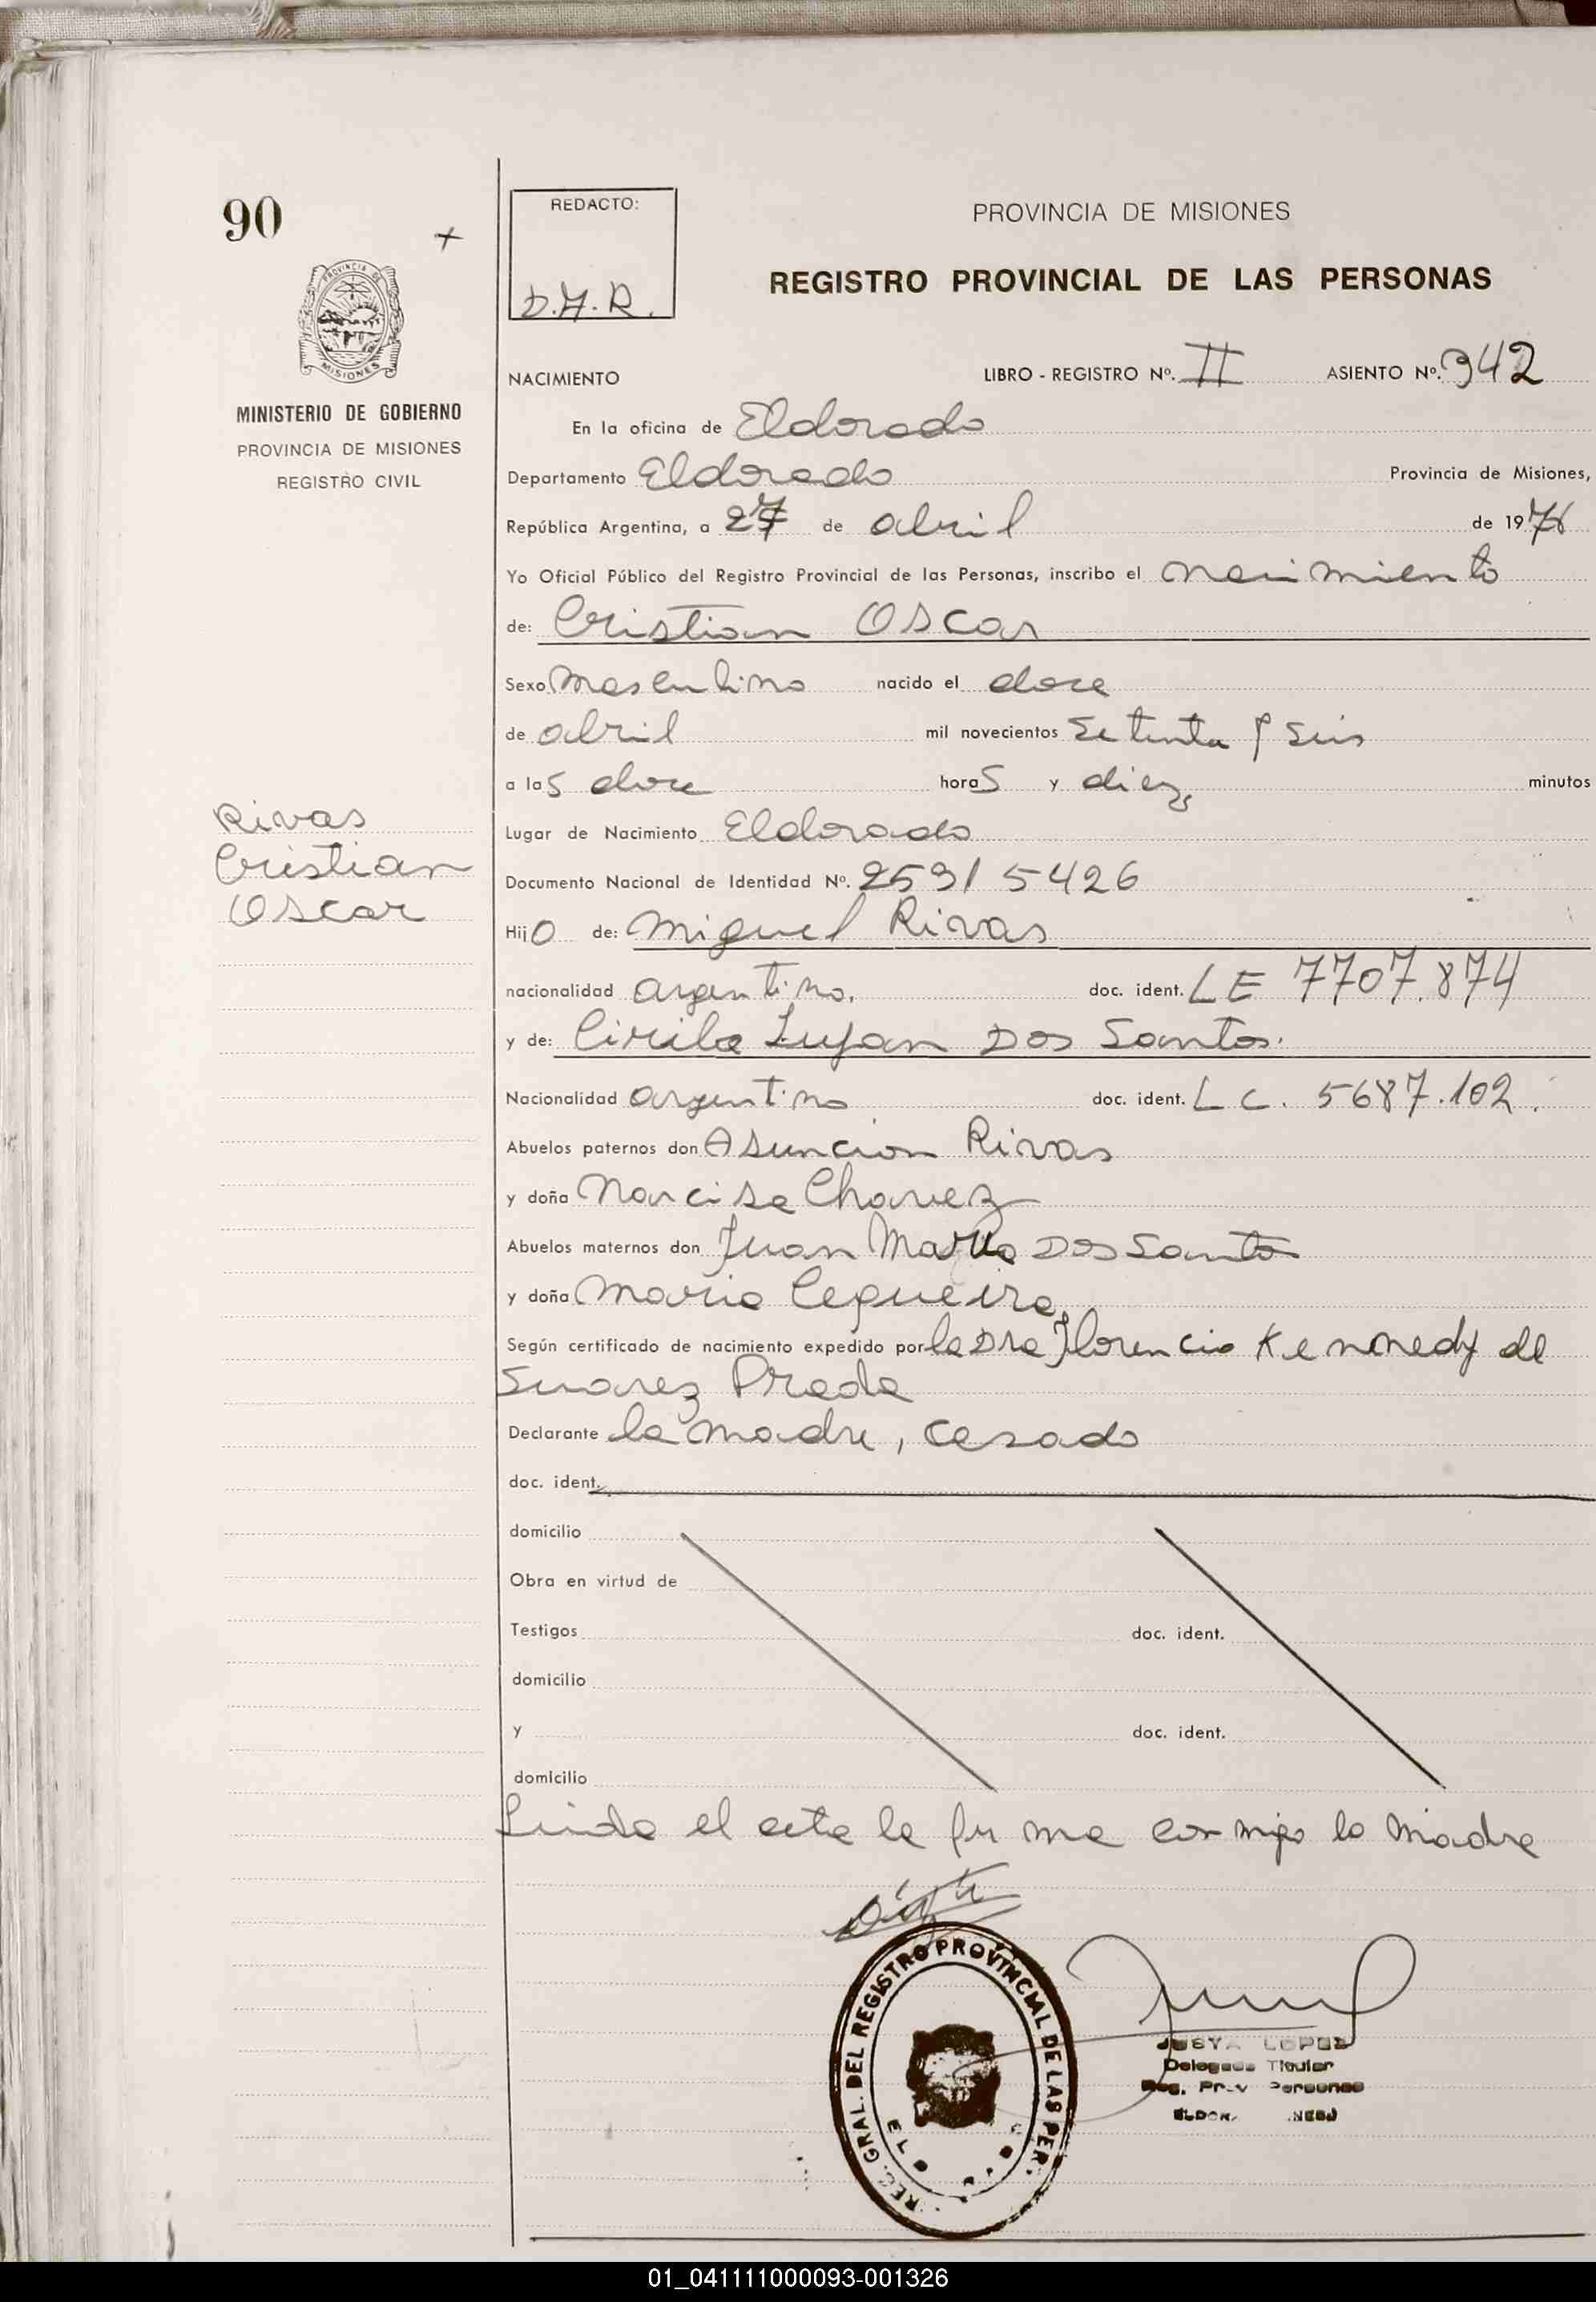 90
+
REDACTO:
D.H.R.
PROVINCIA DE MISIONES
REGISTRO PROVINCIAL DE LAS PERSONAS
MINISTERIO DE GOBIERNO
PROVINCIA DE MISIONES
REGISTRO CIVIL
NACIMIENTO LIBRO - REGISTRO Nº. II ASIENTO Nº. 342
En la oficina de Eldorado
Departamento Eldorado Provincia de Misiones,
República Argentina, a 27 de abril de 1976
Yo Oficial Público del Registro Provincial de las Personas, inscribo el nacimiento
de: Cristian Oscar
Sexo Masculino nacido el doce
de abril mil novecientos setenta y seis
a las doce horas y diez minutos
Rivas
Cristian
Oscar
Lugar de Nacimiento Eldorado
Documento Nacional de Identidad Nº. 25915426
Hijo de: Miguel Rivas
nacionalidad argentino. doc. ident. LE 7707.874
y de: Cirila Lujan Dos Santos.
Nacionalidad argentina doc. ident. LC. 5687.102.
Abuelos paternos don Asuncion Rivas
y doña Narcisa Chavez
Abuelos maternos don Juan Dos Santos
y doña Maria Cequeira
Según certificado de nacimiento expedido por la Dra Florencia Kennedy de
Suarez Prada
Declarante la madre, casado
doc. ident.
domicilio
Obra en virtud de
Testigos doc. ident.
domicilio
y doc. ident.
domicilio
Leida el acta la firma conmigo la Madre
REG. GRAL. DEL REGISTRO PROVINCIAL DE LAS PER.
LOPEZ
Delegada Titular
Reg. Prov Personas
01_041111000093-001326